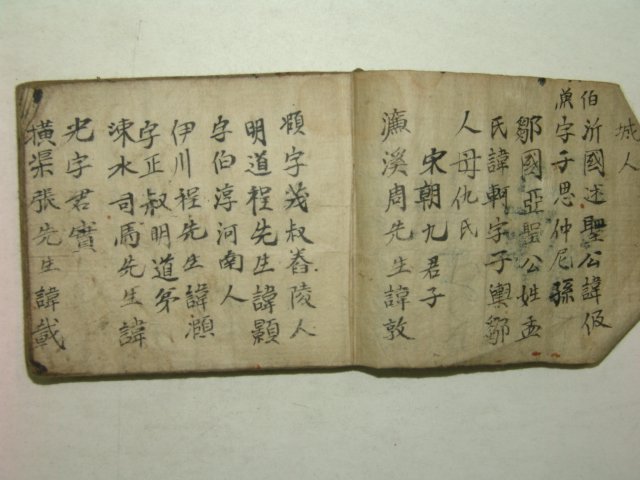 城人
伯沂國述聖公諱伋
字子思仲尼孫
鄒國亞聖公姓孟
氏諱軻字子輿鄒
人母仉氏
宋朝九君子
濂溪周先生諱敦
頤字茂叔舂陵人
明道程先生諱顥
字伯淳河南人
伊川程先生諱頤
字正叔明道弟
涑水司馬先生諱
光字君實
橫渠張先生諱載